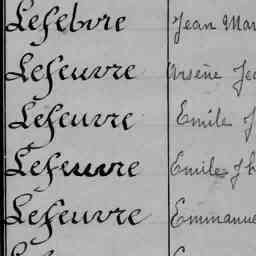 Lefebvre Jean Mar
Lefeuvre Arsène Je
Lefeuvre Emile J
Lefeuvre Emile Jh
Lefeuvre Emmanue